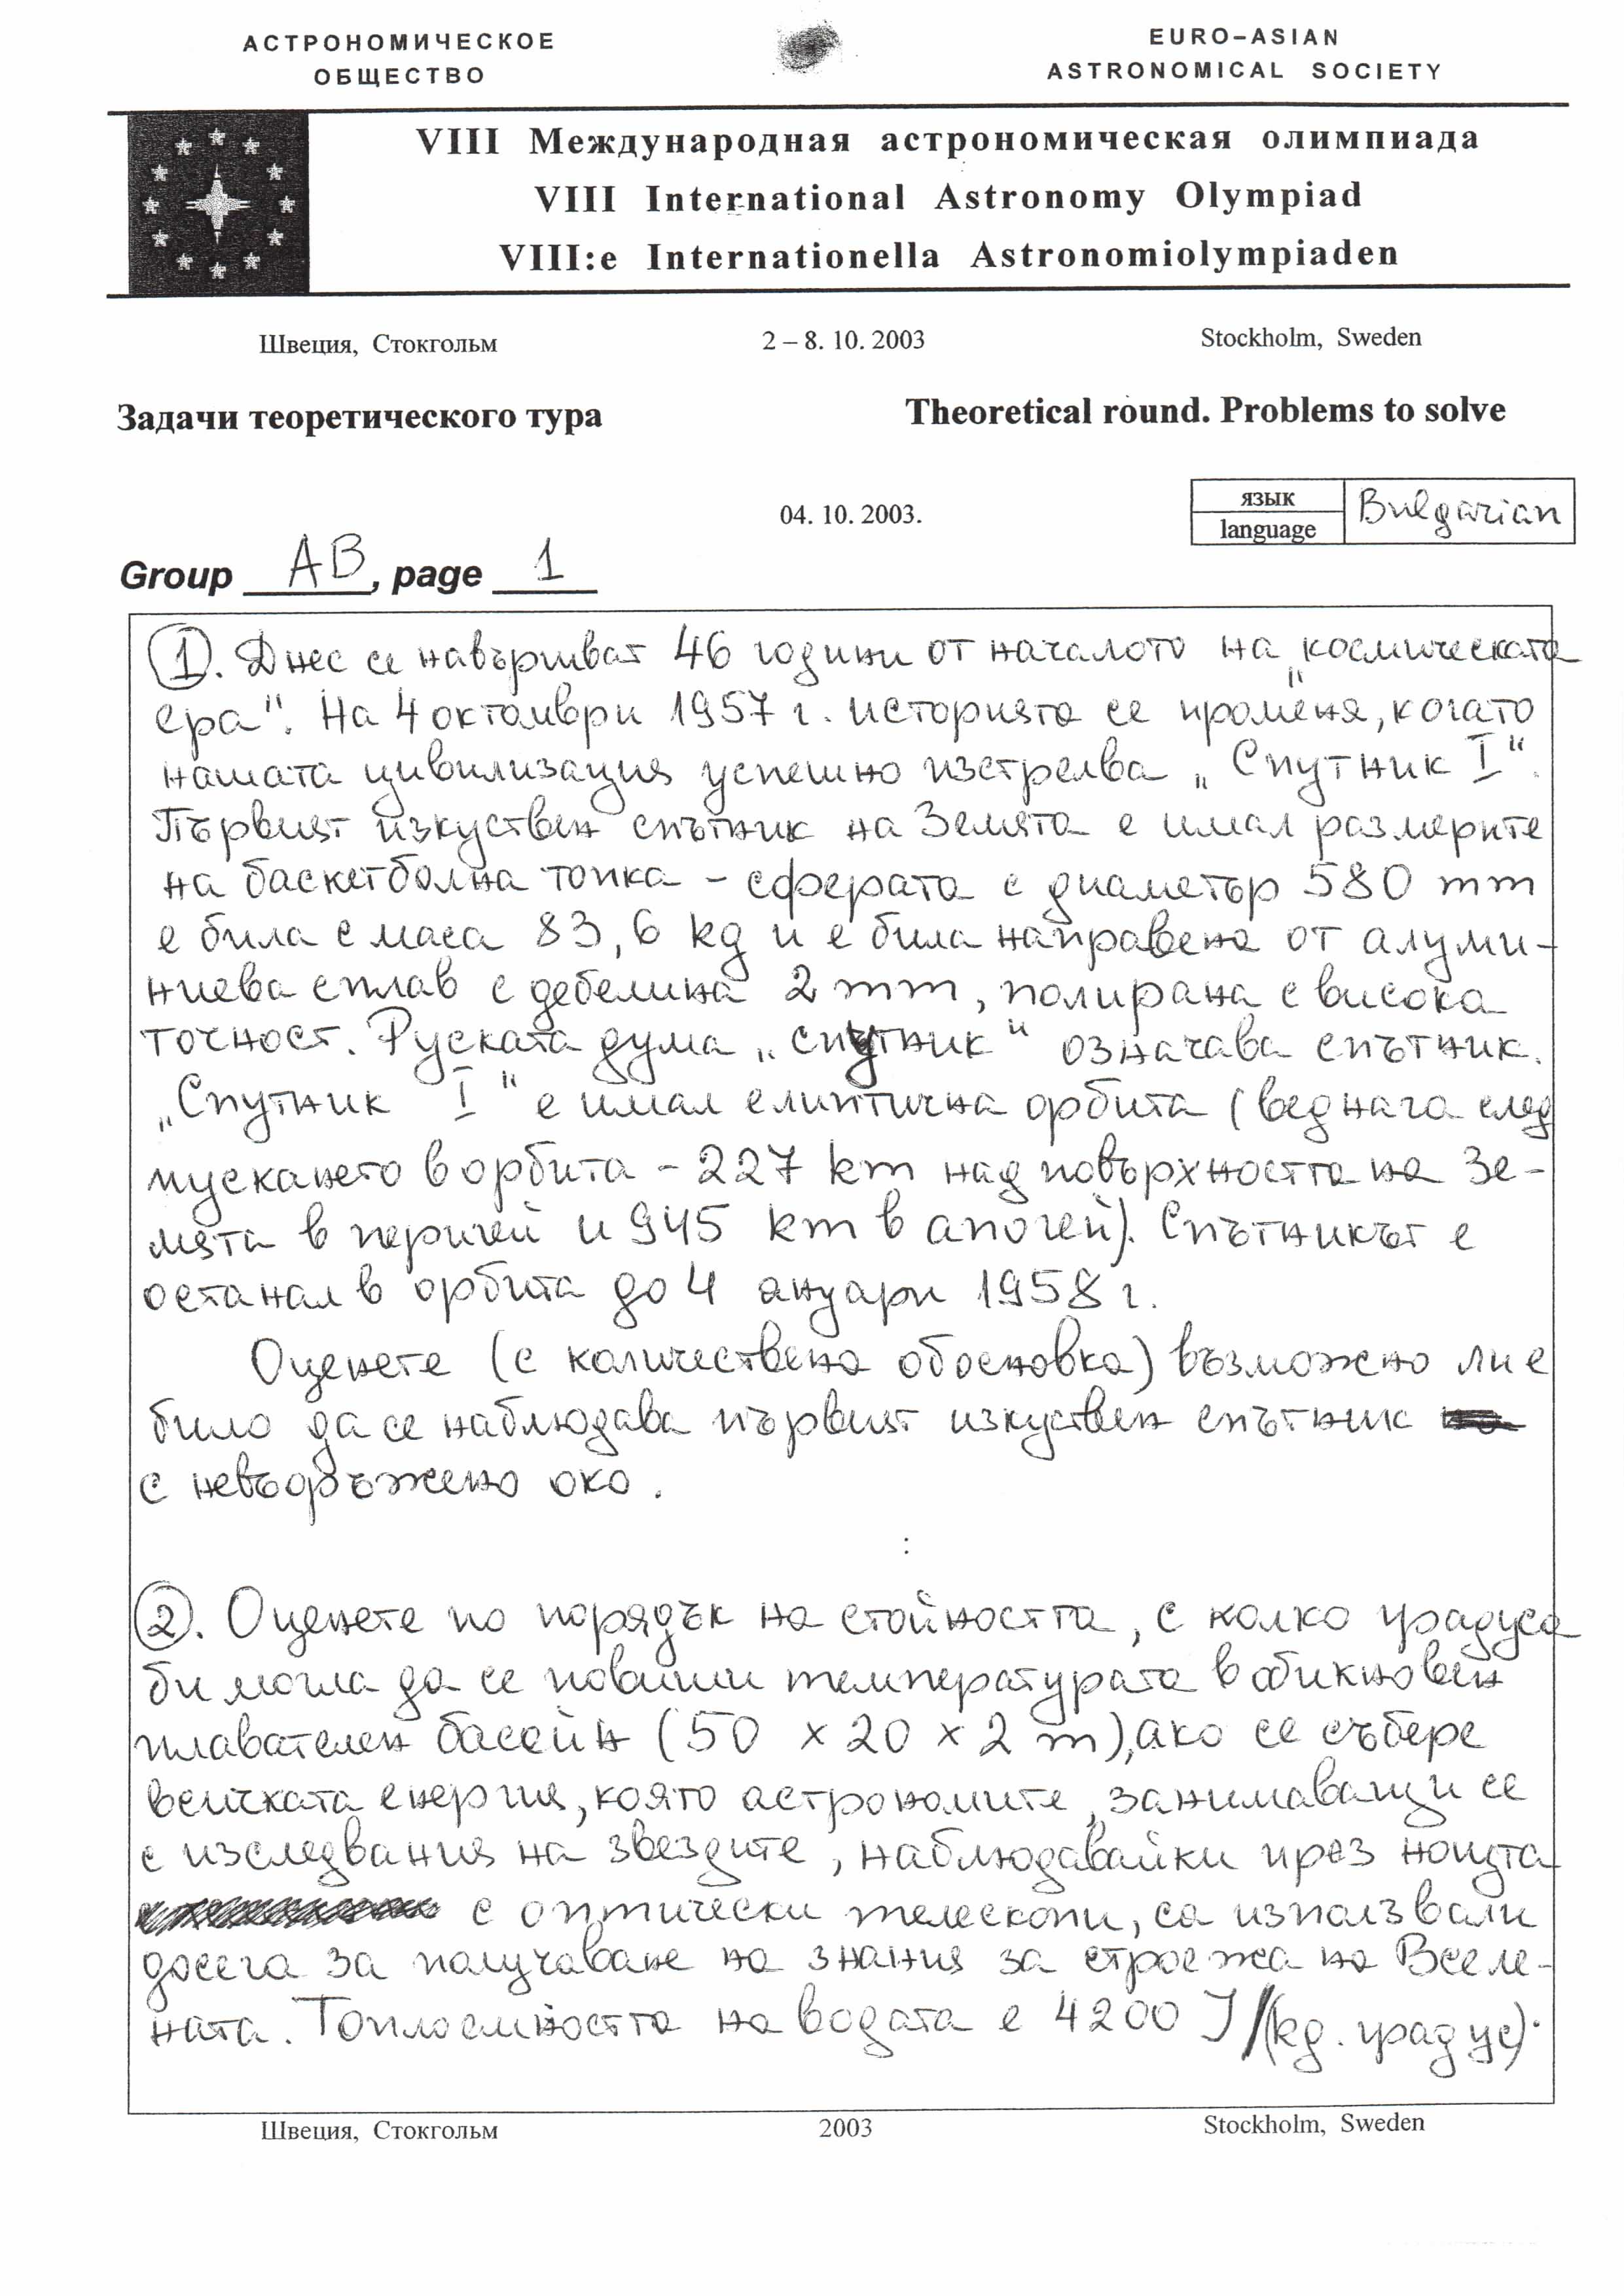 АСТРОНОМИЧЕСКОЕ
ОБЩЕСТВО
EURO–ASIAN
ASTRONOMICAL SOCIETY
VIII Международная астрономическая олимпиада
VIII International Astronomy Olympiad
VIII:e Internationella Astronomiolympiaden
Швеция, Стокгольм 2 – 8. 10. 2003 Stockholm, Sweden
Задачи теоретического тура Theoretical round. Problems to solve
04. 10. 2003.
язык
language
Bulgarian
Group AB, page 1
1. Днес се навършват 46 години от началото на „космическата
ера". На 4 октомври 1957 г. историята се променя, когато
нашата цивилизация успешно изстрелва „Спутник I".
Първият изкуствен спътник на Земята е имал размерите
на баскетболна топка – сферата с диаметър 580 mm
е била с маса 83,6 kg и е била направена от алуми-
ниева сплав с дебелина 2 mm, полирана с висока
точност. Руската дума „спутник" означава спътник.
„Спутник I" е имал елиптична орбита (веднага след
пускането в орбита – 227 km над повърхността на Зе-
мята в перигей и 945 km в апогей). Спътникът е
останал в орбита до 4 януари 1958 г.
Оценете (с количествена обосновка) възможно ли е
било да се наблюдава първият изкуствен спътник
с невъоръжено око.
2. Оценете по порядък на стойността, с колко градуса
би могла да се повиши температурата в обикновен
плавателен басейн (50 x 20 x 2 m), ако се събере
всичката енергия, която астрономите, занимаващи се
с изследвания на звездите, наблюдавайки през нощта
с оптически телескопи, са използвали
досега за получаване на знания за строежа на Вселе-
ната. Топлоемността на водата е 4200 J/(kg. градус).
Швеция, Стокгольм 2003 Stockholm, Sweden